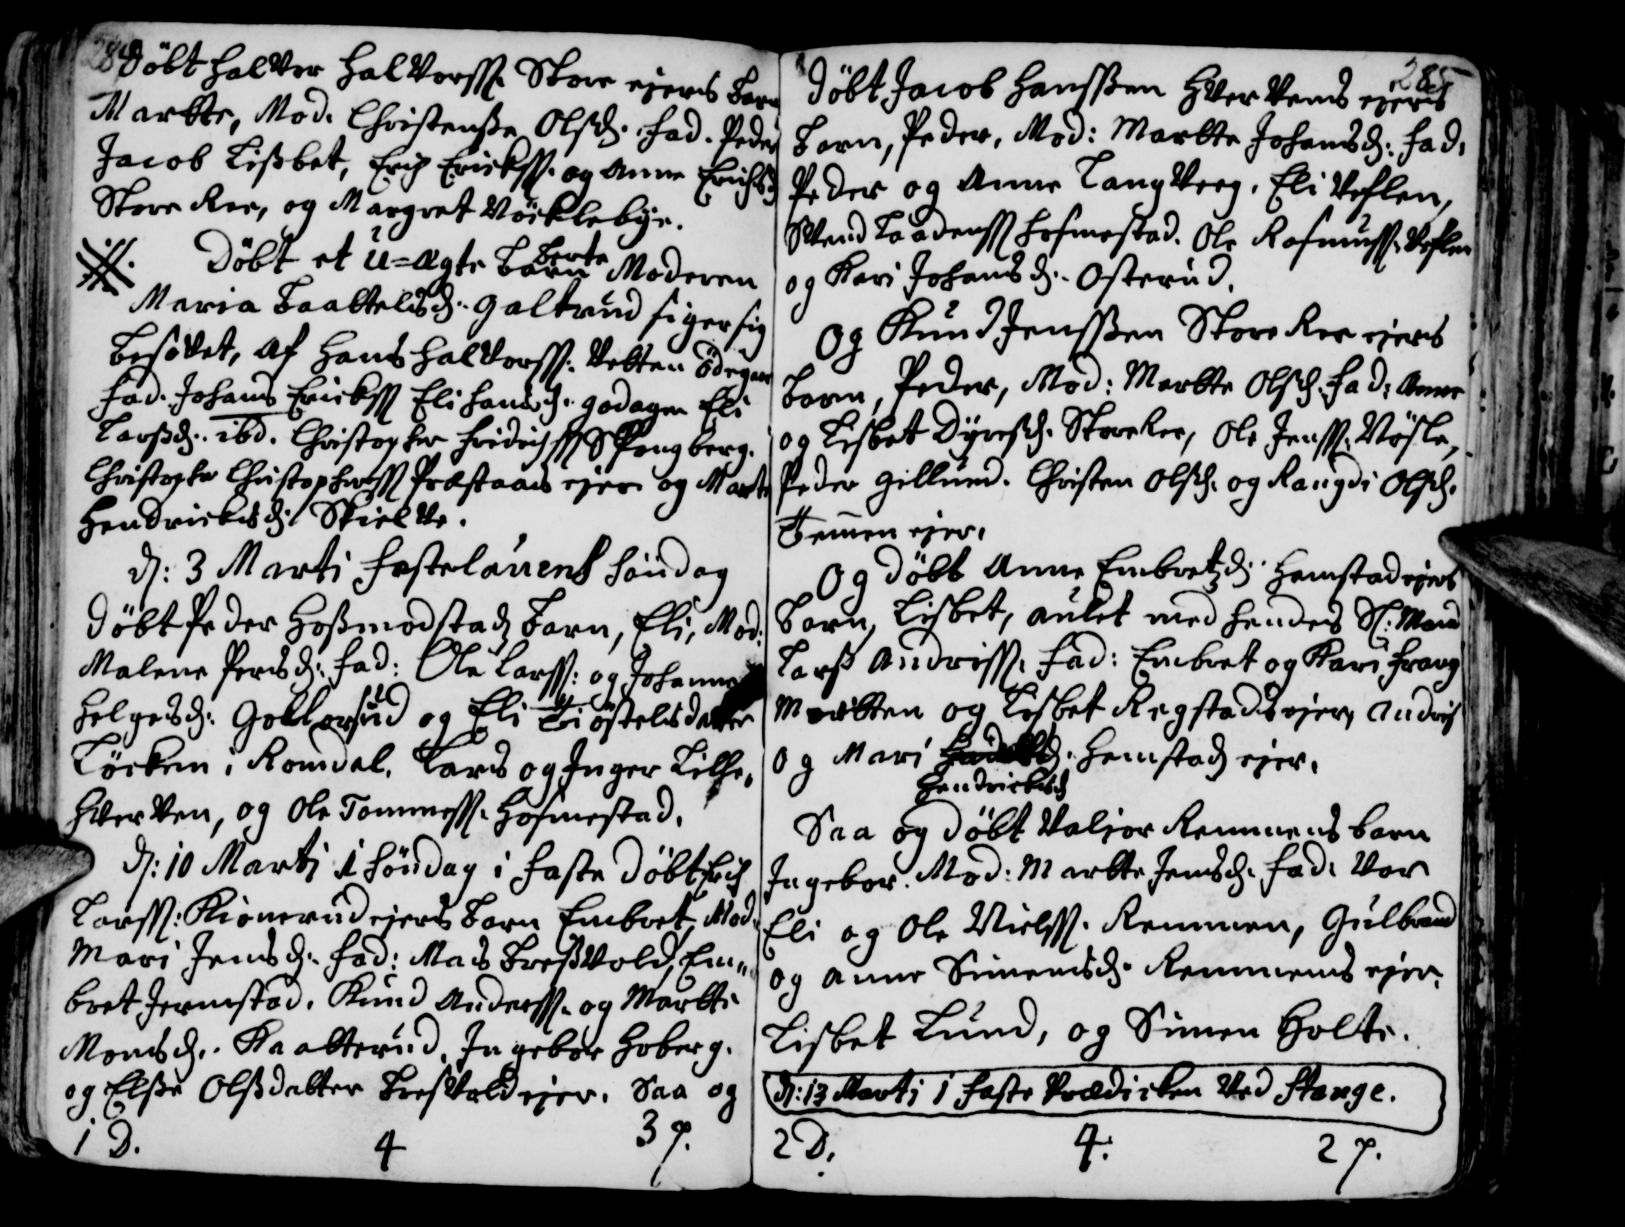 284
Döbt Halvor Halvorss. Store ejers Barn
Marthe, Mod. Christense Olsd. Fad. Peder
Jacob Lisbet, Erich Erickss. og Anne Erichsd
Store Ree, og Margret Nöcklebÿe.
Döbt et U=ægte Barn Berte Moderen
Maria Baaltelsd. Galterud siger sig
Besovet, af Hans Halvorss. Vetten ödegaar
Fad. Johans Erickss Eli Hansd. Godager Eli
Larsd. ibd. Christopher Fridrichss Spangberg.
Christopher Christophers Præstaas ejer og Marte
Hendricksd. Skielve.
D: 3 Marti Fastelauens Söndag
Döbt Peder Hosmodstad Barn, Eli, Mod:
Malene Persd. Fad: Ole Larss: og Johanne
Helgesd: Gokkersud og Eli Tiöstelsdatter
Löcken i Romdal. Lars og Inger Lilhe,
Hverven, og Ole Tommess. Hosmestad.
D: 10 Marti 1 Söndag i Faste Döbt Erich
Larss: Kionerud ejers Barn Embret, Mod.
Mari Jensd. Fad: Mads Bresvold, Em„
bret Jermstad. Knud Anderss. og Marthe
Monsd. Kaatterud, Ingebor Hoberg.
og Else Olsdatter Bresvold ejer. Saa og
1 D. 4 3 p.
285
Döbt Jacob Hanssen Hvervens ejers
Barn, Peder, Mod: Marthe Johansd. Fad.
Peder og Anne Langverg. Eli Veflen,
Svend Hosmestad. Ole Rasmuss. Veflen
og Kari Johansd. Osterud.
Og Knud Jenssen Store Ree ejers
Barn, Peder, Mod: Marthe Olsd. Fad: Anne
og Lisbet Dÿresd. Store Ree, Ole Jenss. Nösle,
Peder Gillund. Christen Olsd. og Rangdi Olsd.
Femen ejer.
Og Döbt Anne Embretzd. Hemstad ejers
Barn, Lisbet, aulet med hendes Sl: Mand
Lars Andriss. Fad: Embret og Kari Frang
Morten og Lisbet Regstads ejer, Andris
og Mari Hendricksd Hemstad ejer.
Saa og Döbt Valjor Remmens Barn
Ingebor. Mod: Marthe Jensd. Fad: Var
Eli og Ole Nielss. Remmen, Gulbrand
og Anne Simensd. Remmens ejer.
Lisbet Lund, og Simen Holte.
D: 13 Marti 1 Faste Prædicken Ved Stange.
2 D. 4: 2 p.